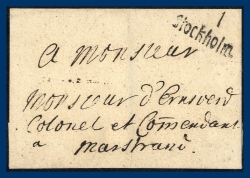 1
Stockholm
A Monsieur
Monsieur d'Ernsverd
Colonel et Comendant
a
Marstrand.